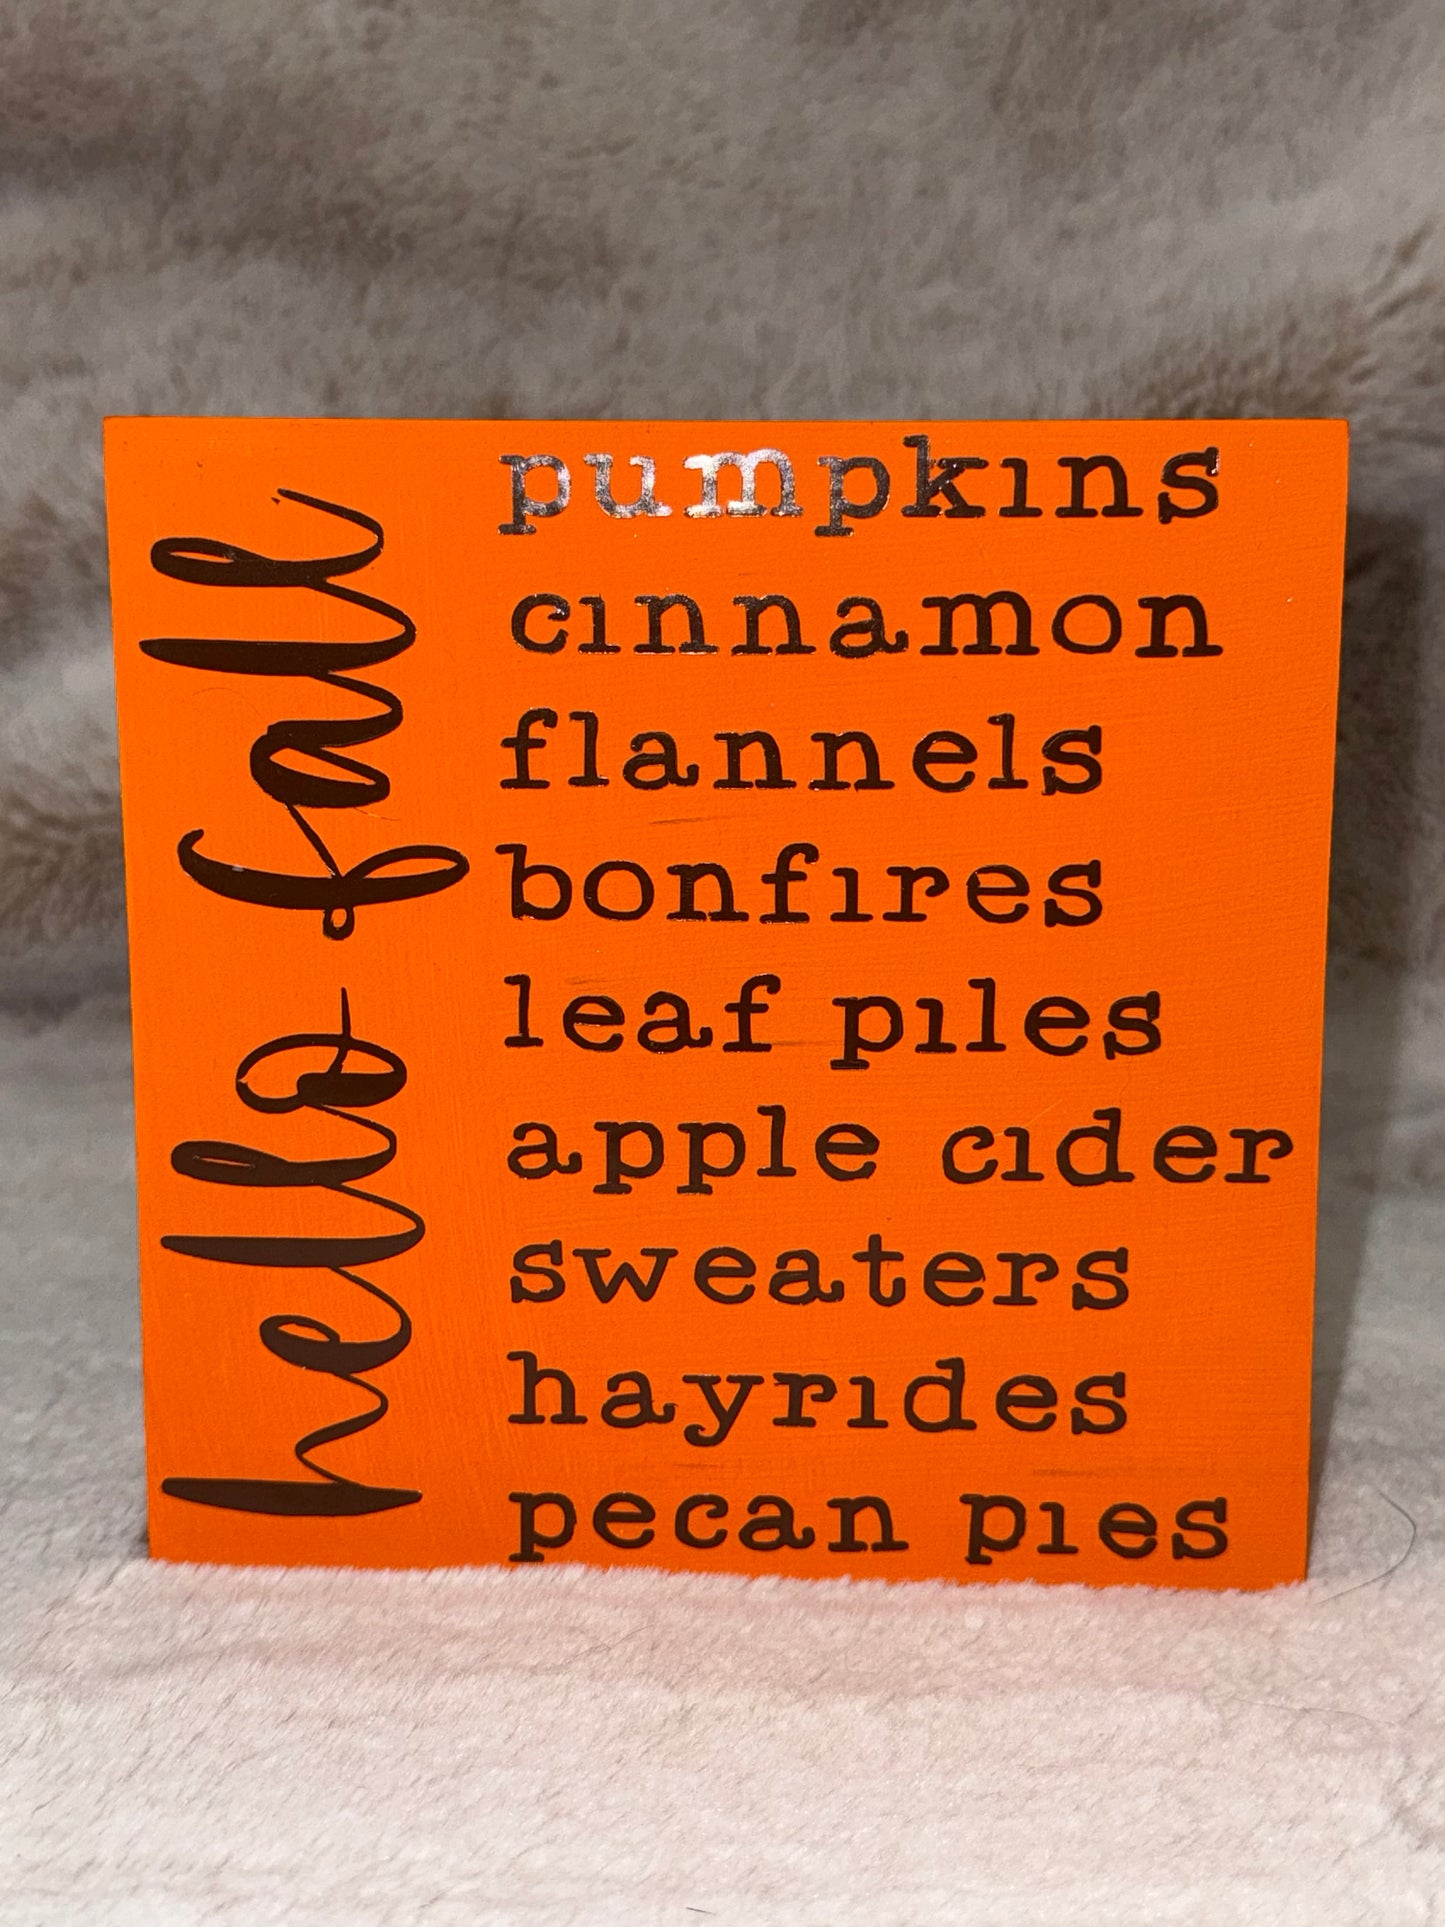 hello fall
pumpkins
cinnamon
flannels
bonfires
leaf piles
apple cider
sweaters
hayrides
pecan pies